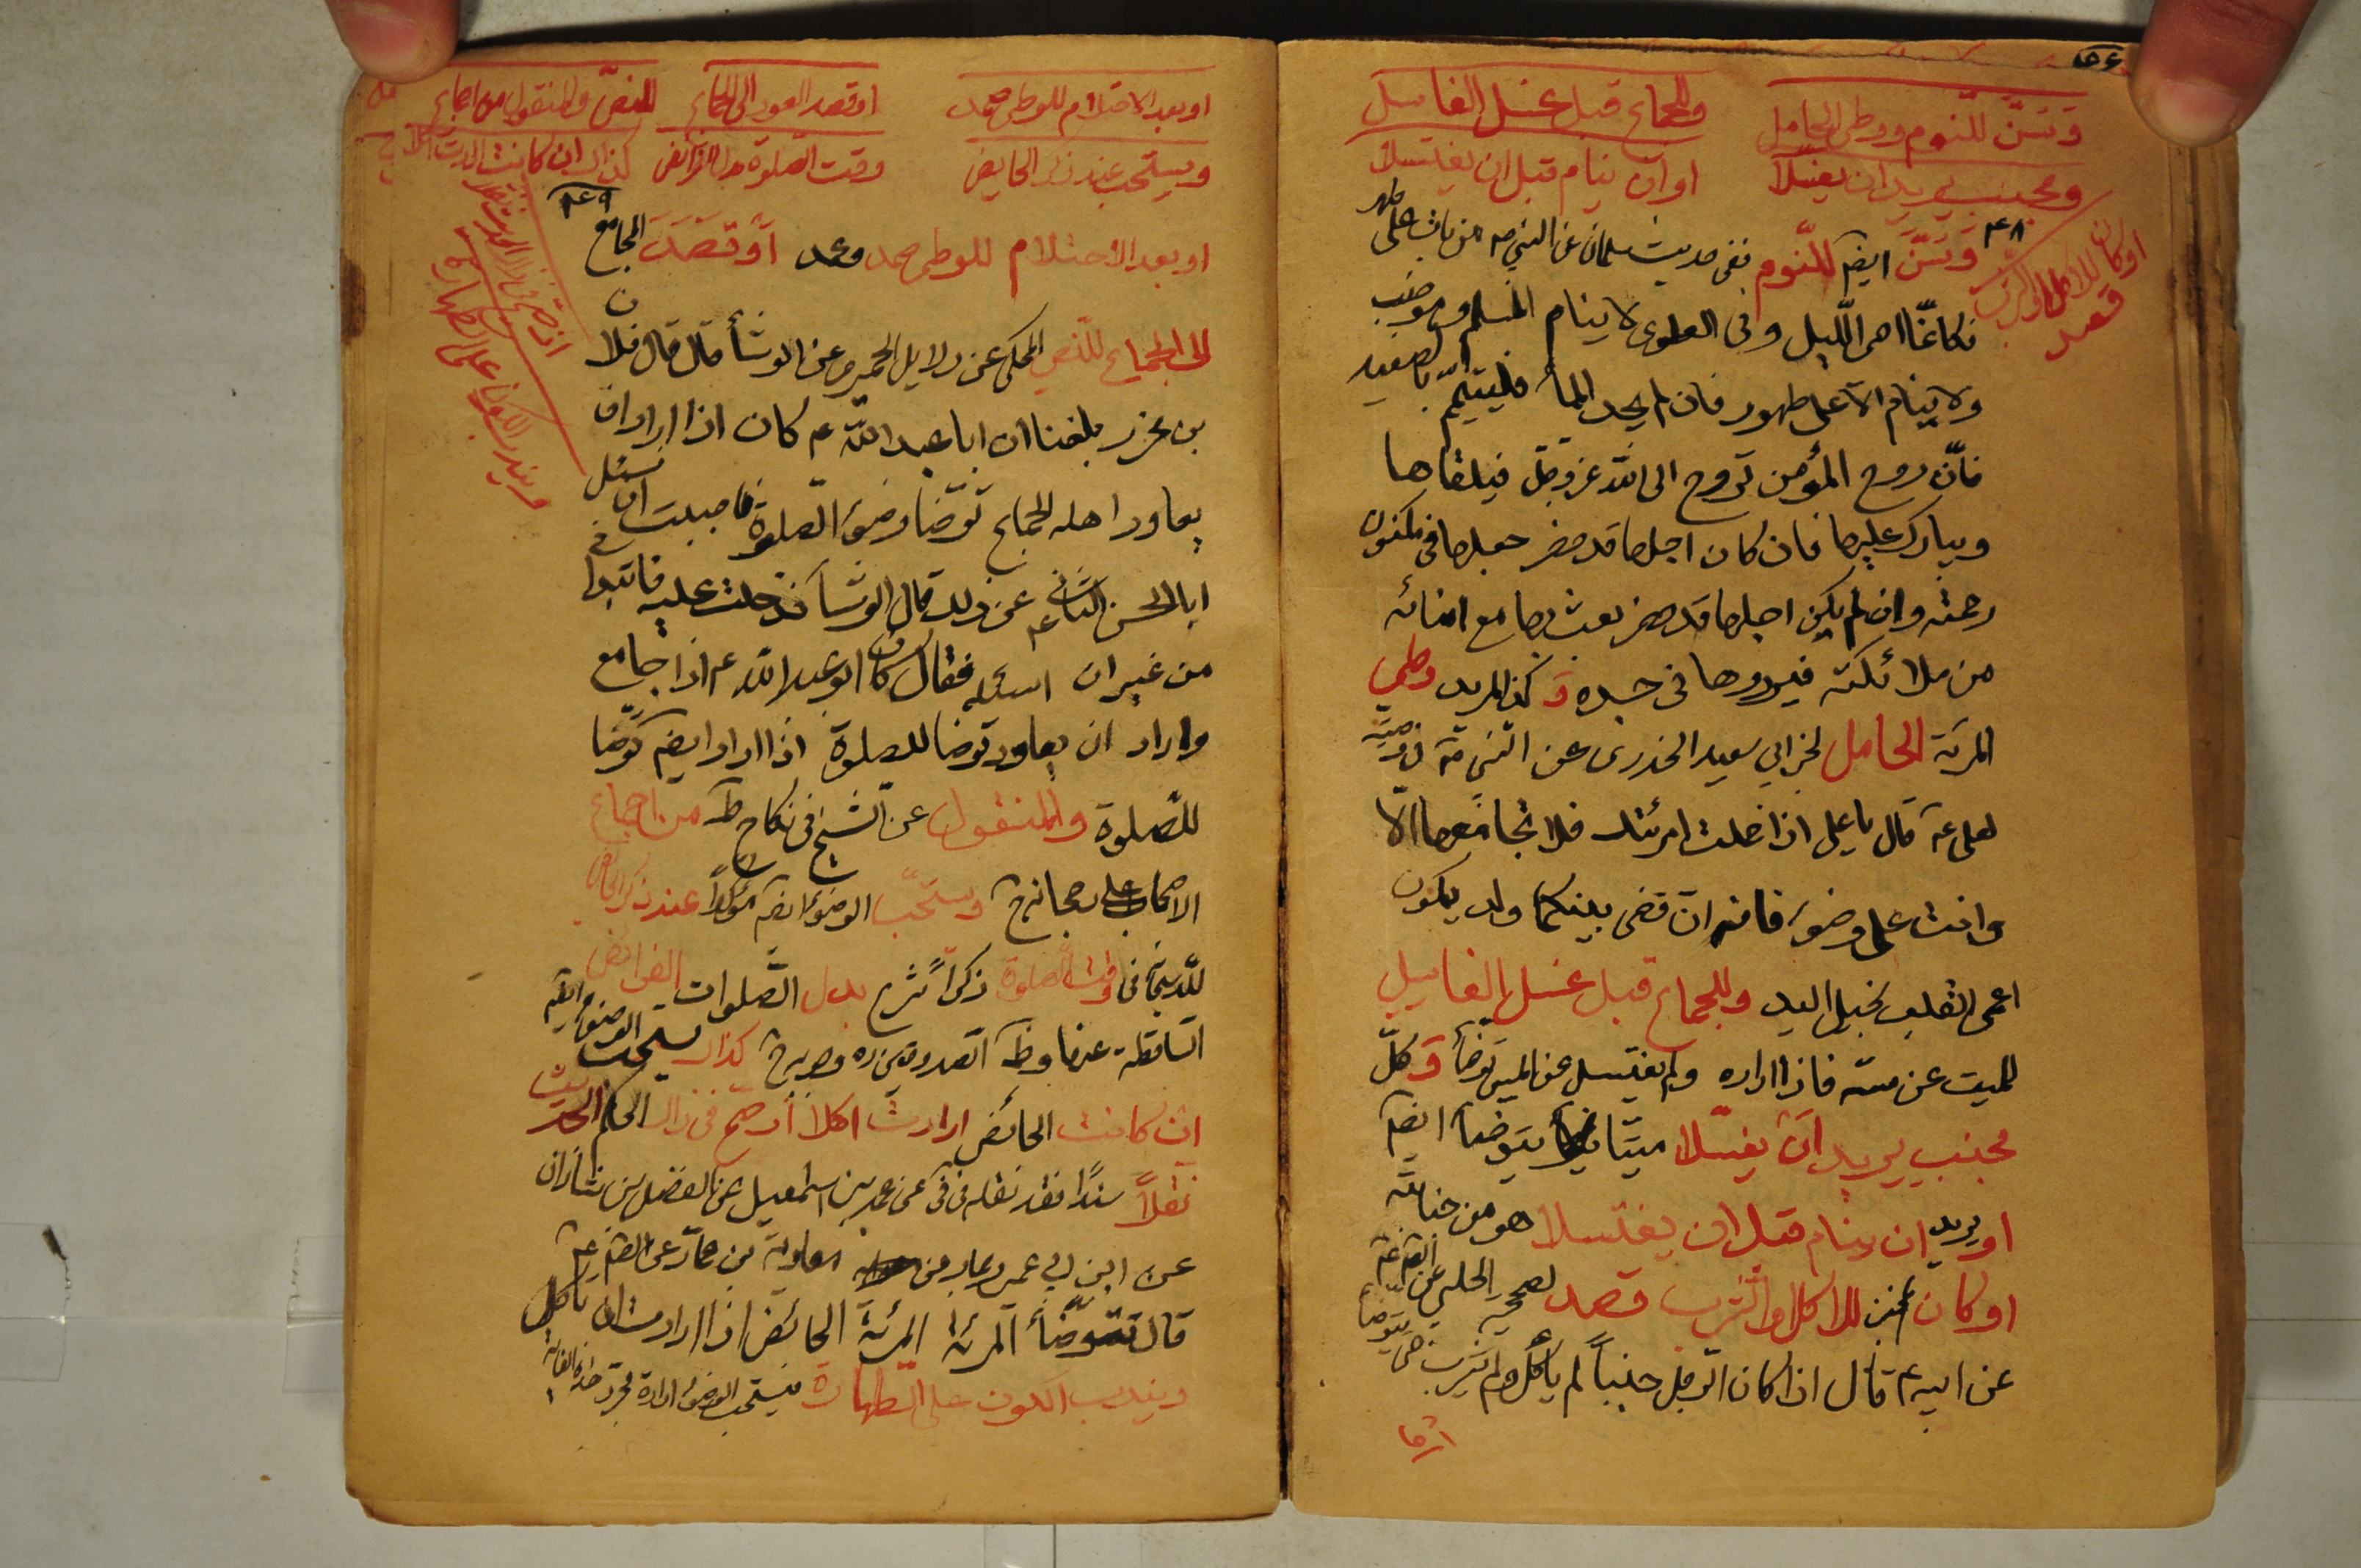 وتسنّ للنوم ووطى الحامل
وللجماع قبل غسل الغاسل
ومجنب يريد ان يغسلا
او ان ينام قبل ان يغتسلا
او كان للاكل او الشرب
قصد
وتسنّ ايضم للنّوم ففى حديث سلمان عن النبي ص من بات على طهر
فكانمّا احى اللّيل وفى العلوى لا ينام المسلم وهو جنب
ولا ينام الّا على طهور فان لم يجد المأ فليتيمّم بالصعيد
فانّ روح المؤمن تروح الى اللّه عزوجلّ فيلقاها
ويبارك عليها فان كان اجلها قد حضر جعلها فى مكنون
رحمته وان لم يكن اجلها قد حضر بعث بها مع امنائه
من ملائكته فيردوها فى جسده و كذا لمريد وطى
المرئة الحامل لخبر ابي سعيد الخدرى عن النّبي ص فى وصيته
لعلى ع قال يا على اذا حملت امرئتك فلا تجامعها الّا
وانت على وضوء فانه ان قضى بينكما ولد يكون
اعمى القلب بخيل اليد وللجماع قبل غسل الغاسل
للميت عن مسه فاذا اراده ولم يغتسل عن المس توضأ و كلّ
مجنب يريد ان يغسّلا ميّتا يتوضأ ايضم
او يريد ان ينام قبل ان يغتسلا هو من جنابته
او كان مجنب للاكل او الشرب قصد لصحيح الحلبي عن الصم ع
عن ابيه ع قال اذا كان الرجل جنباً لم يأكل ولم يشرب حتى يتوضأ
او بعد الاحتلام للوطى عمد
او قصد العود الى الجماع
للنصّ والمنقول من اجماع
ويستحب عند ذكر الحايض
وقت الصلوة بدل الفرائض
كذاك ان كانت ارادت اكلا
ويندب الكون على الطهارة
او بعد الاحتلام للوطى عمد وعمد او قصد المجامع
الى الجماع للنّص المحكى عن دلايل الحميرى عن الوشأ قال قال فلان
بن محرز بلغنا ان ابا عبد اللّه ع كان اذا اراد ان
يعاود اهله للجماع توضّا وضوء الصّلوة فاحببت ان تسئل
ابا الحسن الثانى ع عن ذلك قال الوشأ فدخلت عليه فابتدأنى
من غير ان اسئله فقال كان ابو عبد اللّه ع اذا جامع
واراد ان يعاود توضا للصلوة اذا اراد ايضم توضّا
للصّلوة والمنقول عن الشيخ فى نكاح ط من اجماع
الاصحاب على رجحانه ويستحبّ الوضوء ايضم مؤكداً عند ذكر الحائض
للّه سبحانه فى وقت الصلوة ذكراً شرع بدل الصّلوات الفرائض
السّاقطة عنها وظ الصدوقين ره وجوبه كذاك يستحب الوضوء ايضم
ان كانت الحائض ارادت اكلا اذ صحّ فى ذاك الحكم الحديث
نقلاً سنداً فقد نقله فى فى عن محمد بن اسمعيل عن الفضل بن شاذان
عن ابن ابي عمير وعن معاوية بن عمار عن الصم ع
قال تتوضّأ المرئة الحائض اذا ارادت ان يأكل
ويندب الكون على الطهارة فيستحب الوضوء